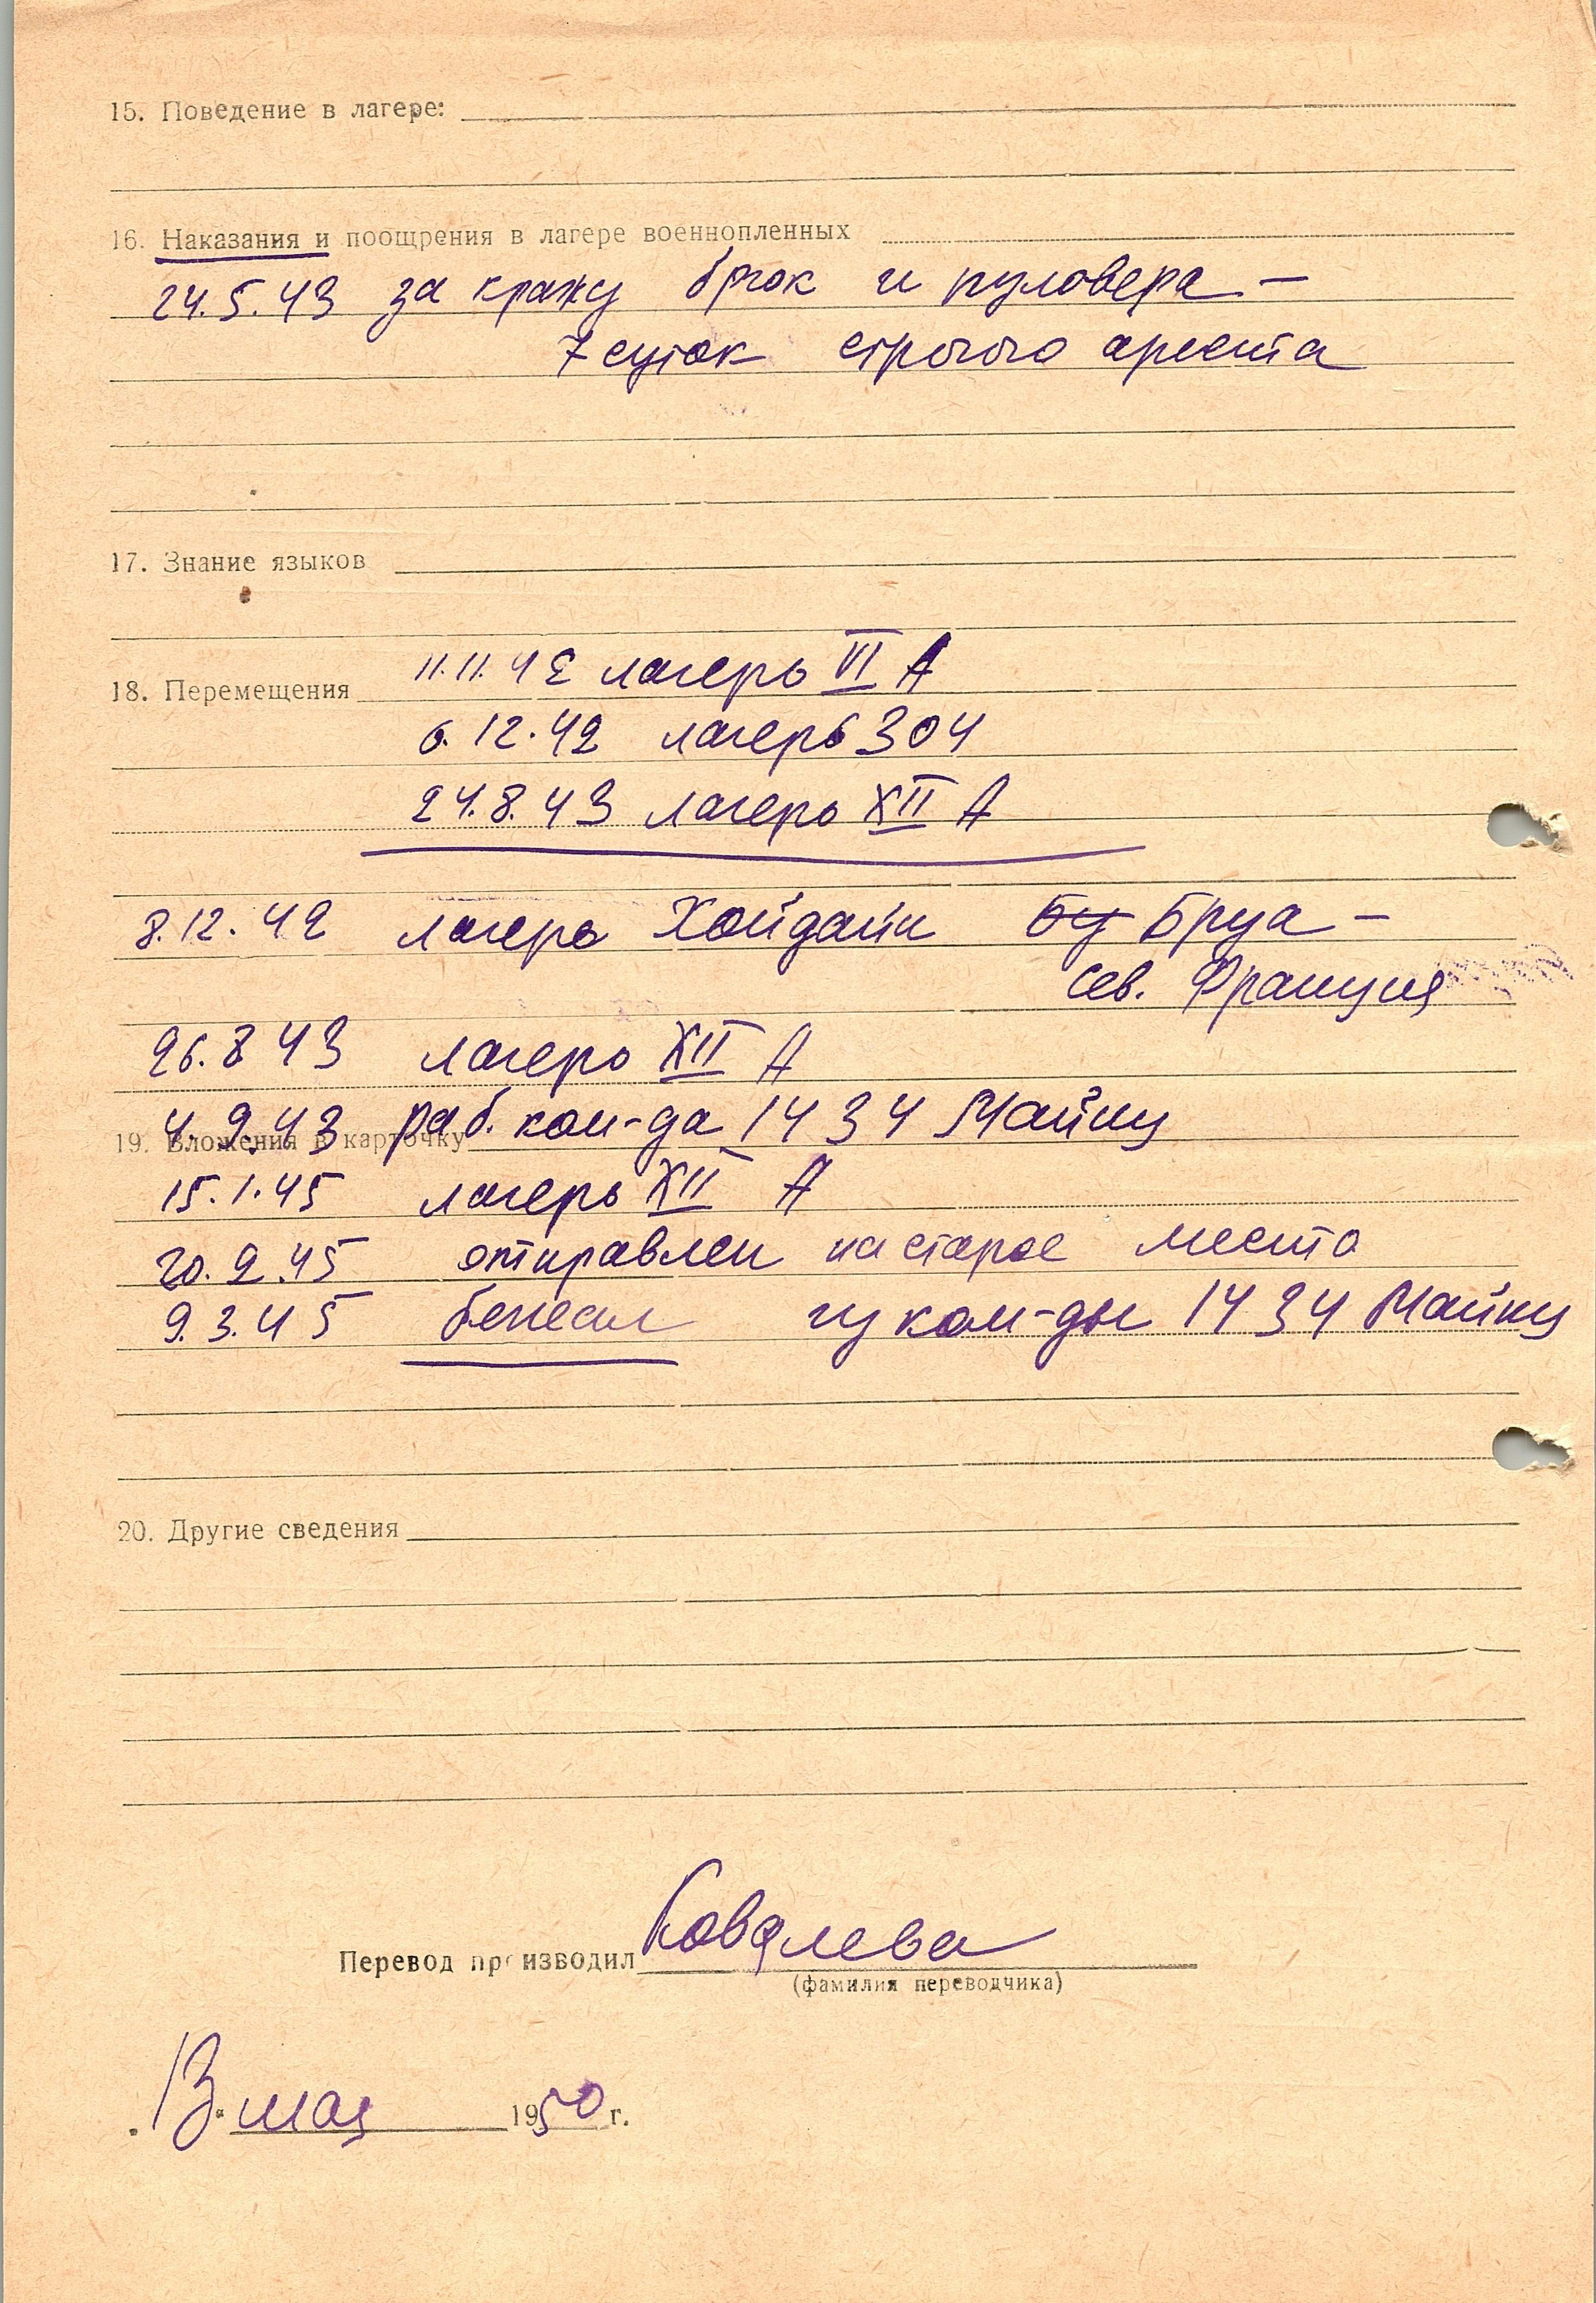 15. Поведение в лагере:
16. Наказания и поощрения в лагере военнопленных
24.5.43 за кражу брюк и пуловера –
7 суток строгого ареста
17. Знание языков
11.11.42 лагерь VI A
18. Перемещения
6.12.42 лагерь 304
24.8.43 лагерь XII A
8.12.42 лагерь Хойдайн Бу Бруа –
Сев. Франция
26.8 43 лагерь XII A
4.9.43 раб. ком-да 1434 Майнц
19. Вложения в карточку
15.1.45 лагерь XII A
20.2.45 отправлен на старое место
9.3.45 бежал из ком-ды 1434 Майнц
20. Другие сведения
Перевод производил Ковалева
(фамилия переводчика)
13 мая 1950 г.